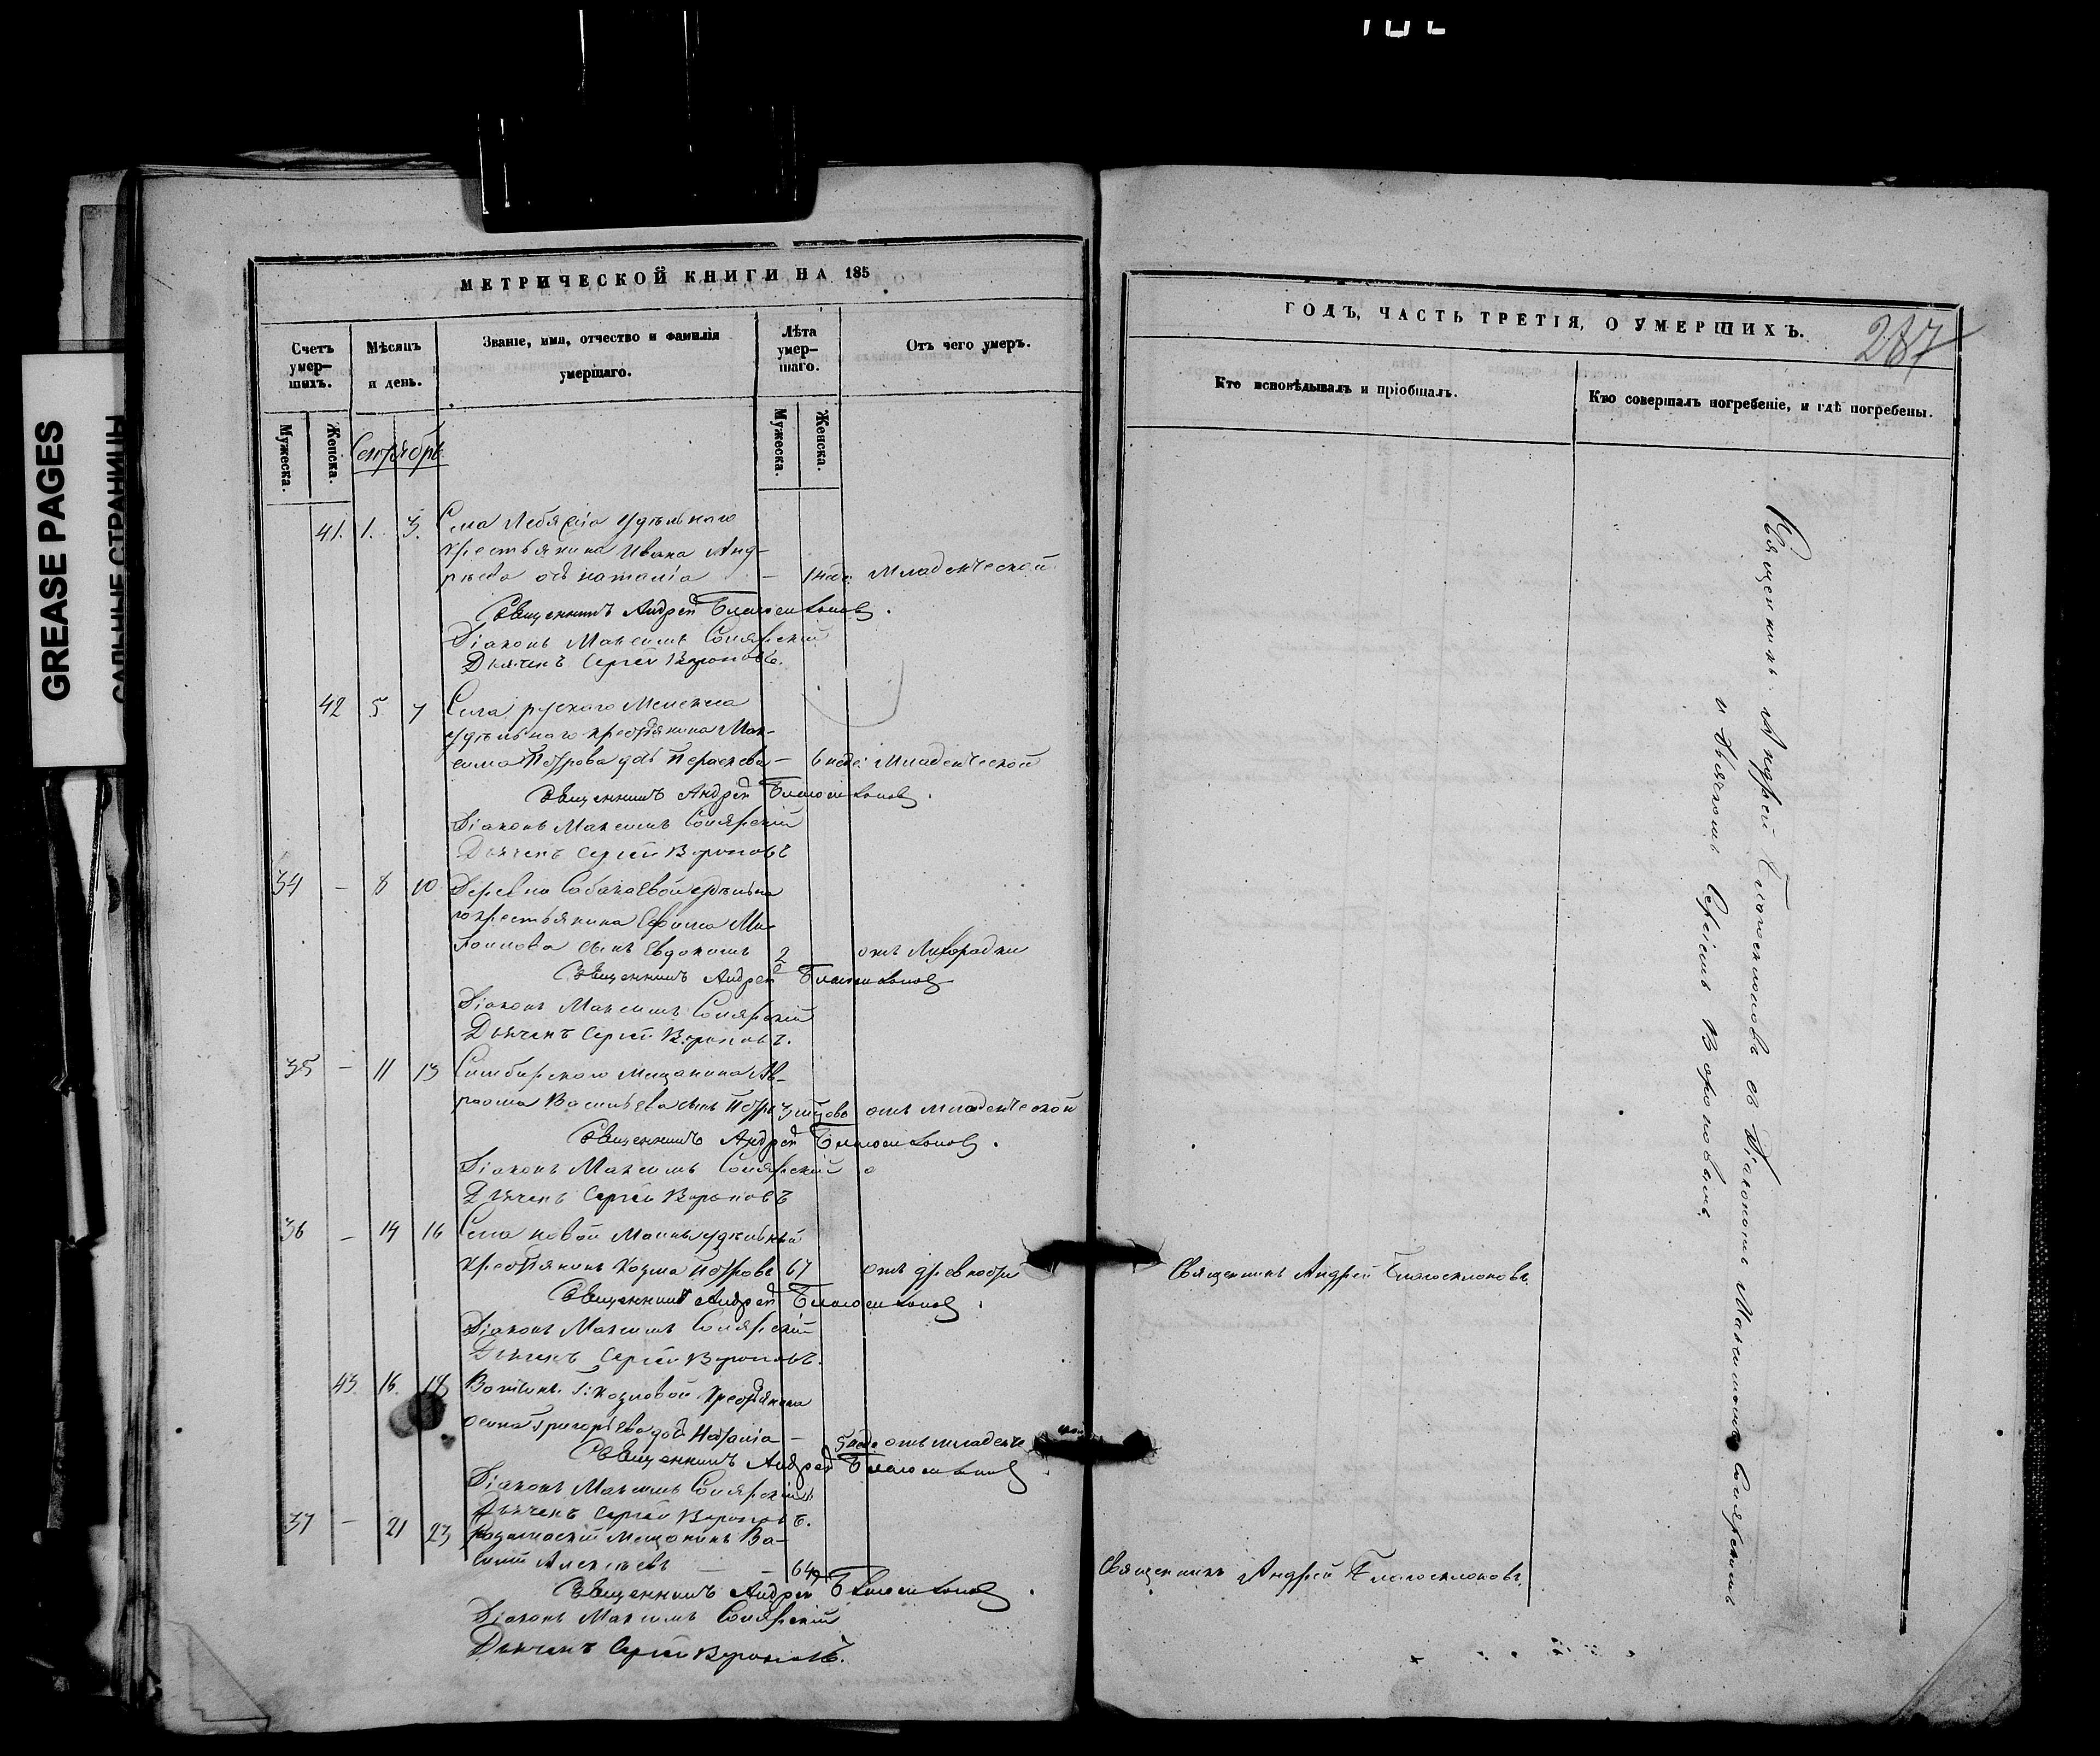 GREASE PAGES
САЛЬНЫЕ СТРАНИЦЫ
МЕТРИЧЕСКОЙ КНИГИ НА 185
Счетъ умер-шихъ.
Мѣсяцъ и день.
Званіе, имя, отчество и фамилія умершаго.
Лѣта умер-шаго.
Отъ чего умеръ.
Мужеска.
Женска.
Сентябрь
Мужеска.
Женска.
41. 1. 3. Села удѣльнаго
крестьянина Ивана Анд-
рѣева Наталія – Младенческой
Священникъ Андрей Благосклоновъ.
Діаконъ Максимъ
Дьячекъ Сергей Вороновъ.
42 5 7 Села рускаго Мелекеса
удѣльнаго крестьянина Мак-
сима Петрова дочь – 6 неде: младенческой
Священникъ Андрей Благосклоновъ.
Діаконъ Максимъ
Дьячекъ Сергей Вороновъ
34 – 8 10 Деревни Собакаевой удѣльна
го крестьянина Ефима Ми-
хайлова сынъ Евдокимъ 2 отъ лихорадки
Священникъ Андрей Благосклоновъ
Діаконъ Максимъ
Дьячекъ Сергей Вороновъ.
35 – 11 13 Симбирскаго мещанина Ав-
раама Васильева сынъ Петръ отъ младенческой
Священникъ Андрей Благосклоновъ.
Діаконъ Максимъ
Дьячекъ Сергей Вороновъ
36 – 14 16 Села новой Майны удѣльный
крестьянинъ Козма Петровъ 67 отъ древности
Священникъ Андрей Благосклоновъ.
Діаконъ Максимъ
Дьячекъ Сергей Вороновъ.
43. 16. 18 Вотчины Г: Козловой крестьянина
Осипа Григорьева дочь Наталія – 5 неде: отъ младенче
ской
Священникъ Андрей Благосклоновъ
Діаконъ Максимъ
Дьячекъ Сергей Вороновъ.
37 – 21 23 мещанинъ Ва-
силій Алексѣевъ – – 64
Священникъ Андрей Благосклоновъ.
Діаконъ Максимъ
Дьячекъ Сергей Вороновъ.
ГОДЪ, ЧАСТЬ ТРЕТІЯ, О УМЕРШИХЪ.
287
Кто исповѣдывалъ и пріобщалъ.
Кто совершалъ погребеніе, и гдѣ погребены.
Священникъ Андрей Благосклоновъ съ Діакономъ Максимомъ
и дьячкомъ Сергіемъ Вороновымъ.
Священникъ Андрей Благосклоновъ.
Священникъ Андрей Благосклоновъ.